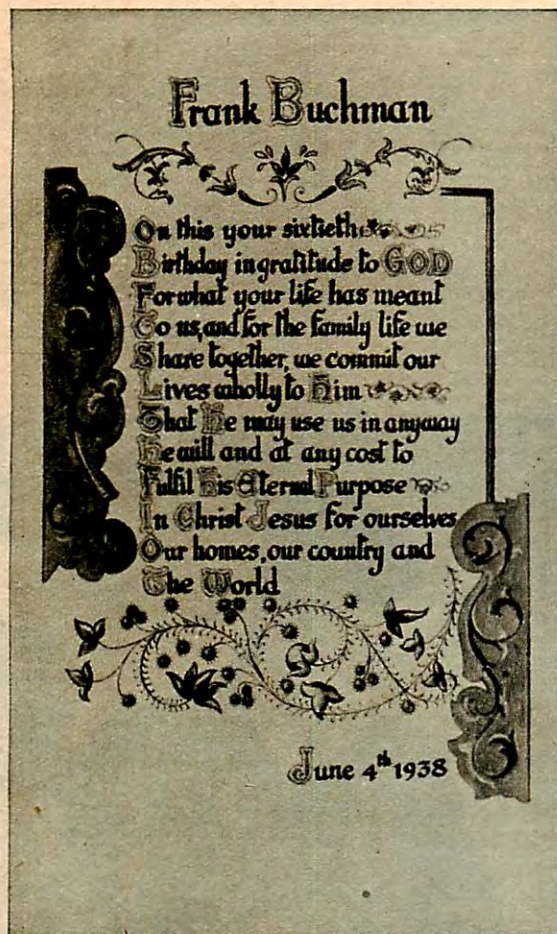 Frank Buchman
On this your sixtieth
Birthday in gratitude to GOD
For what your life has meant
To us, and for the family life we
Share together, we commit our
Lives wholly to Him
That He may use us in anyway
He will and at any cost to
Fulfil His Eternal Purpose
In Christ Jesus for ourselves
Our homes, our country and
The World
June 4th 1938